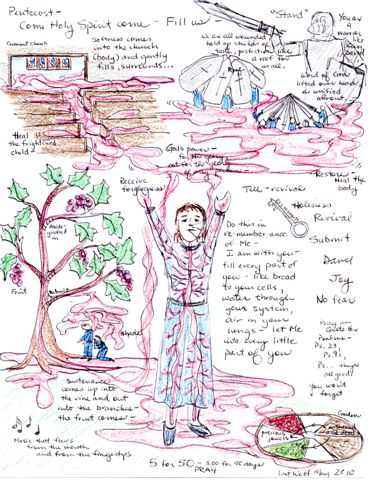 Pentecost -
Come Holy Spirit come - Fill us
Covenant church
Softness comes
into the church
(body) and gently
fills, surrounds...
"Stand"
You are
a
warrior
like
King
David
We are all wounded
hold up shields of
faith, protection like
a roof for
us all.
Word of God
lifted over heads
a unified
Heal
the frightened
child
God's power -
for the glory
not for the glory
Receive
forgiveness
Restore -
Heal the
body
Tell - revival
Holiness
Revival
Submit
David
Joy
No fear
Abide
protect
in
Do this in
re-member-ance
of Me -
I am with you -
fill every part of
you - like bread
to your cells,
water through
your system,
air in your
lungs let Me
into every little
part of you
Fruit
shade
Psalms -
Ps. 23,
Ps. 91,
Ps...
all good
you won't
forget
Sustenance
comes up into
the vine and out
into the branches -
the fruit comes -
Music that flows
from the mouth
and from the fingertips
precious
jewels
Garden
5 for 50 - 5:00 for 50 days
PRAY
Last Week May 2010